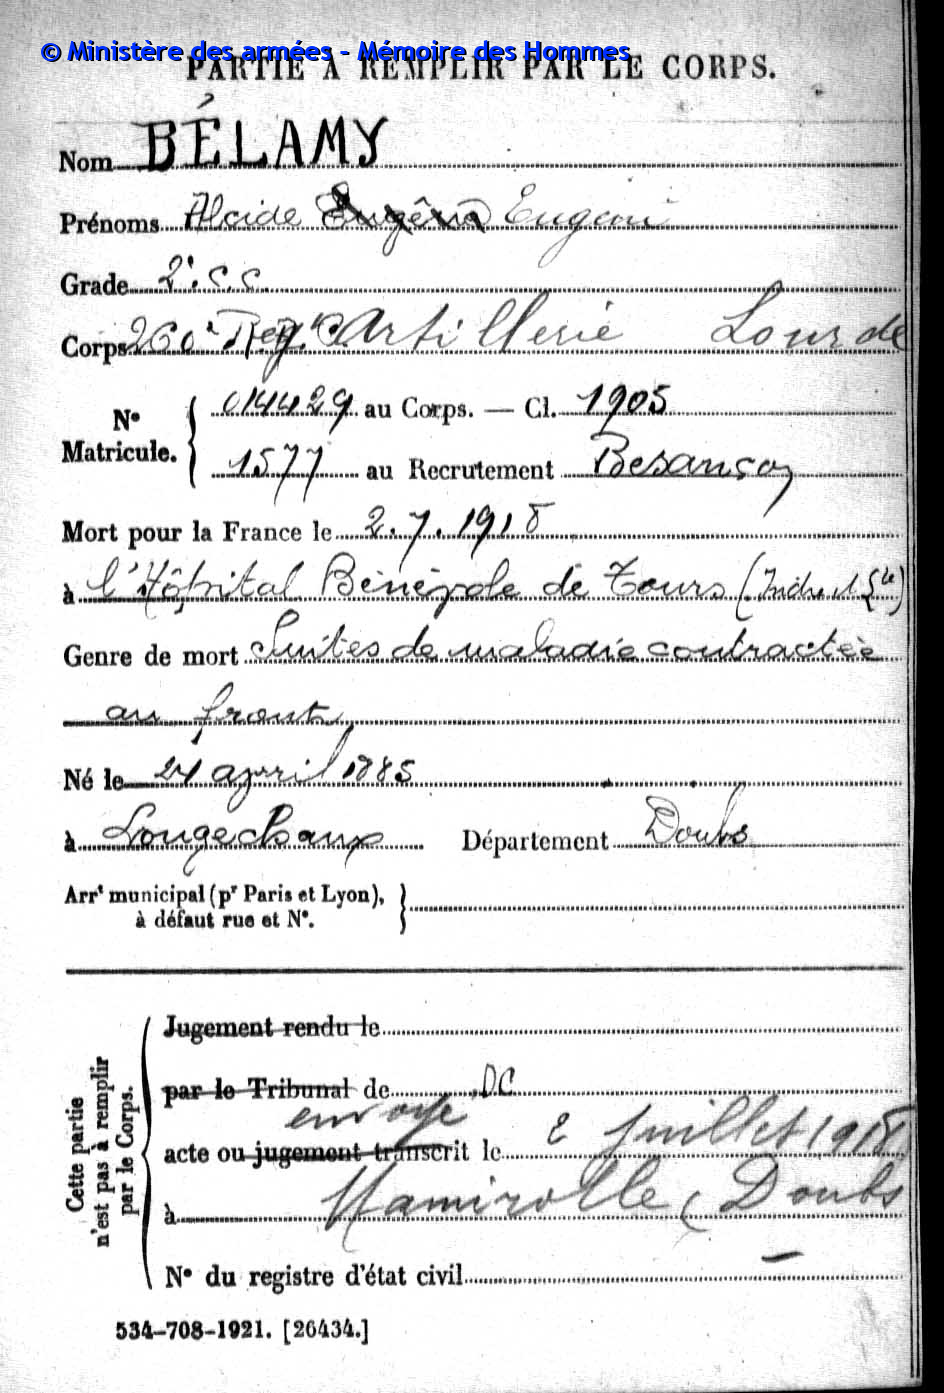 © Ministère des armées - Mémoire des Hommes
PARTIE À REMPLIR PAR LE CORPS.
Nom BÉLAMY
Prénoms Alcide Eugène
Grade 2e c. c.
Corps 260e Rég. d'Artillerie Lourde
N° Matricule. 014429 au Corps. — Cl. 1905
1577 au Recrutement Besançon
Mort pour la France le 2.7.1918
à l'Hôpital Bénévole de Tours (Indre et Lre)
Genre de mort Suites de maladie contractée
au front
Né le 24 avril 1885
à Longechaux Département Doubs
Arrt municipal (pr Paris et Lyon),
à défaut rue et N°.
Cette partie n'est pas à remplir par le Corps.
Jugement rendu le
par le Tribunal de DC
envoyé
acte ou jugement transcrit le 2 Juillet 1918
à Mamirolle (Doubs
N° du registre d'état civil —
534-708-1921. [26434.]